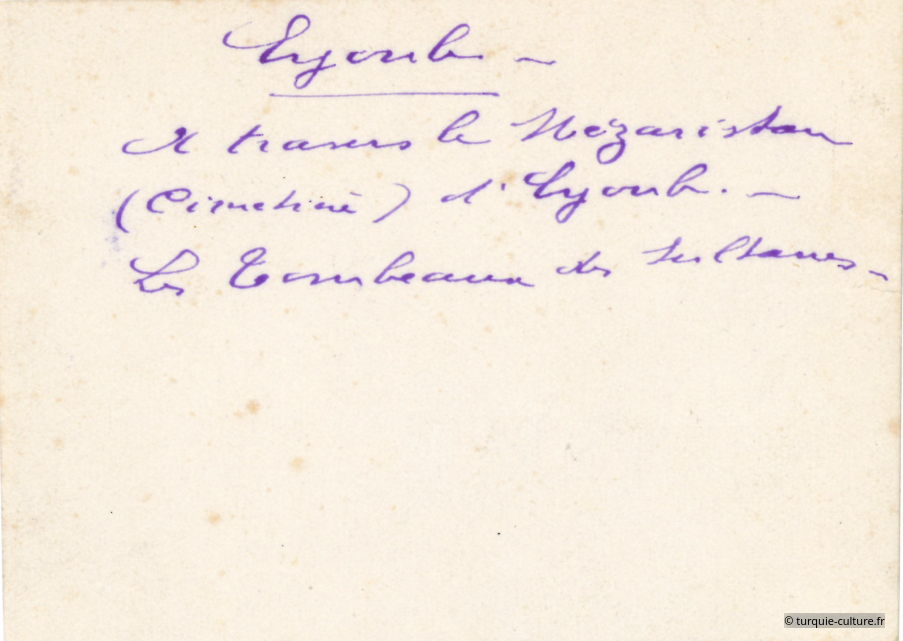 Eyoub –
A travers le Mézaristan
(Cimetière) d'Eyoub. –
Les Tombeaux des Sultanes –
© turquie-culture.fr